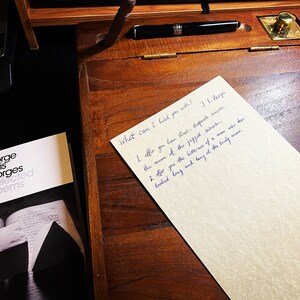 What can I hold you with? J L Borges
I offer you lean streets, desperate sunsets,
the moon of the jagged suburbs.
I offer you the bitterness of a man who has
looked long and long at the lonely moon.
orge
is
orges
lected
oems